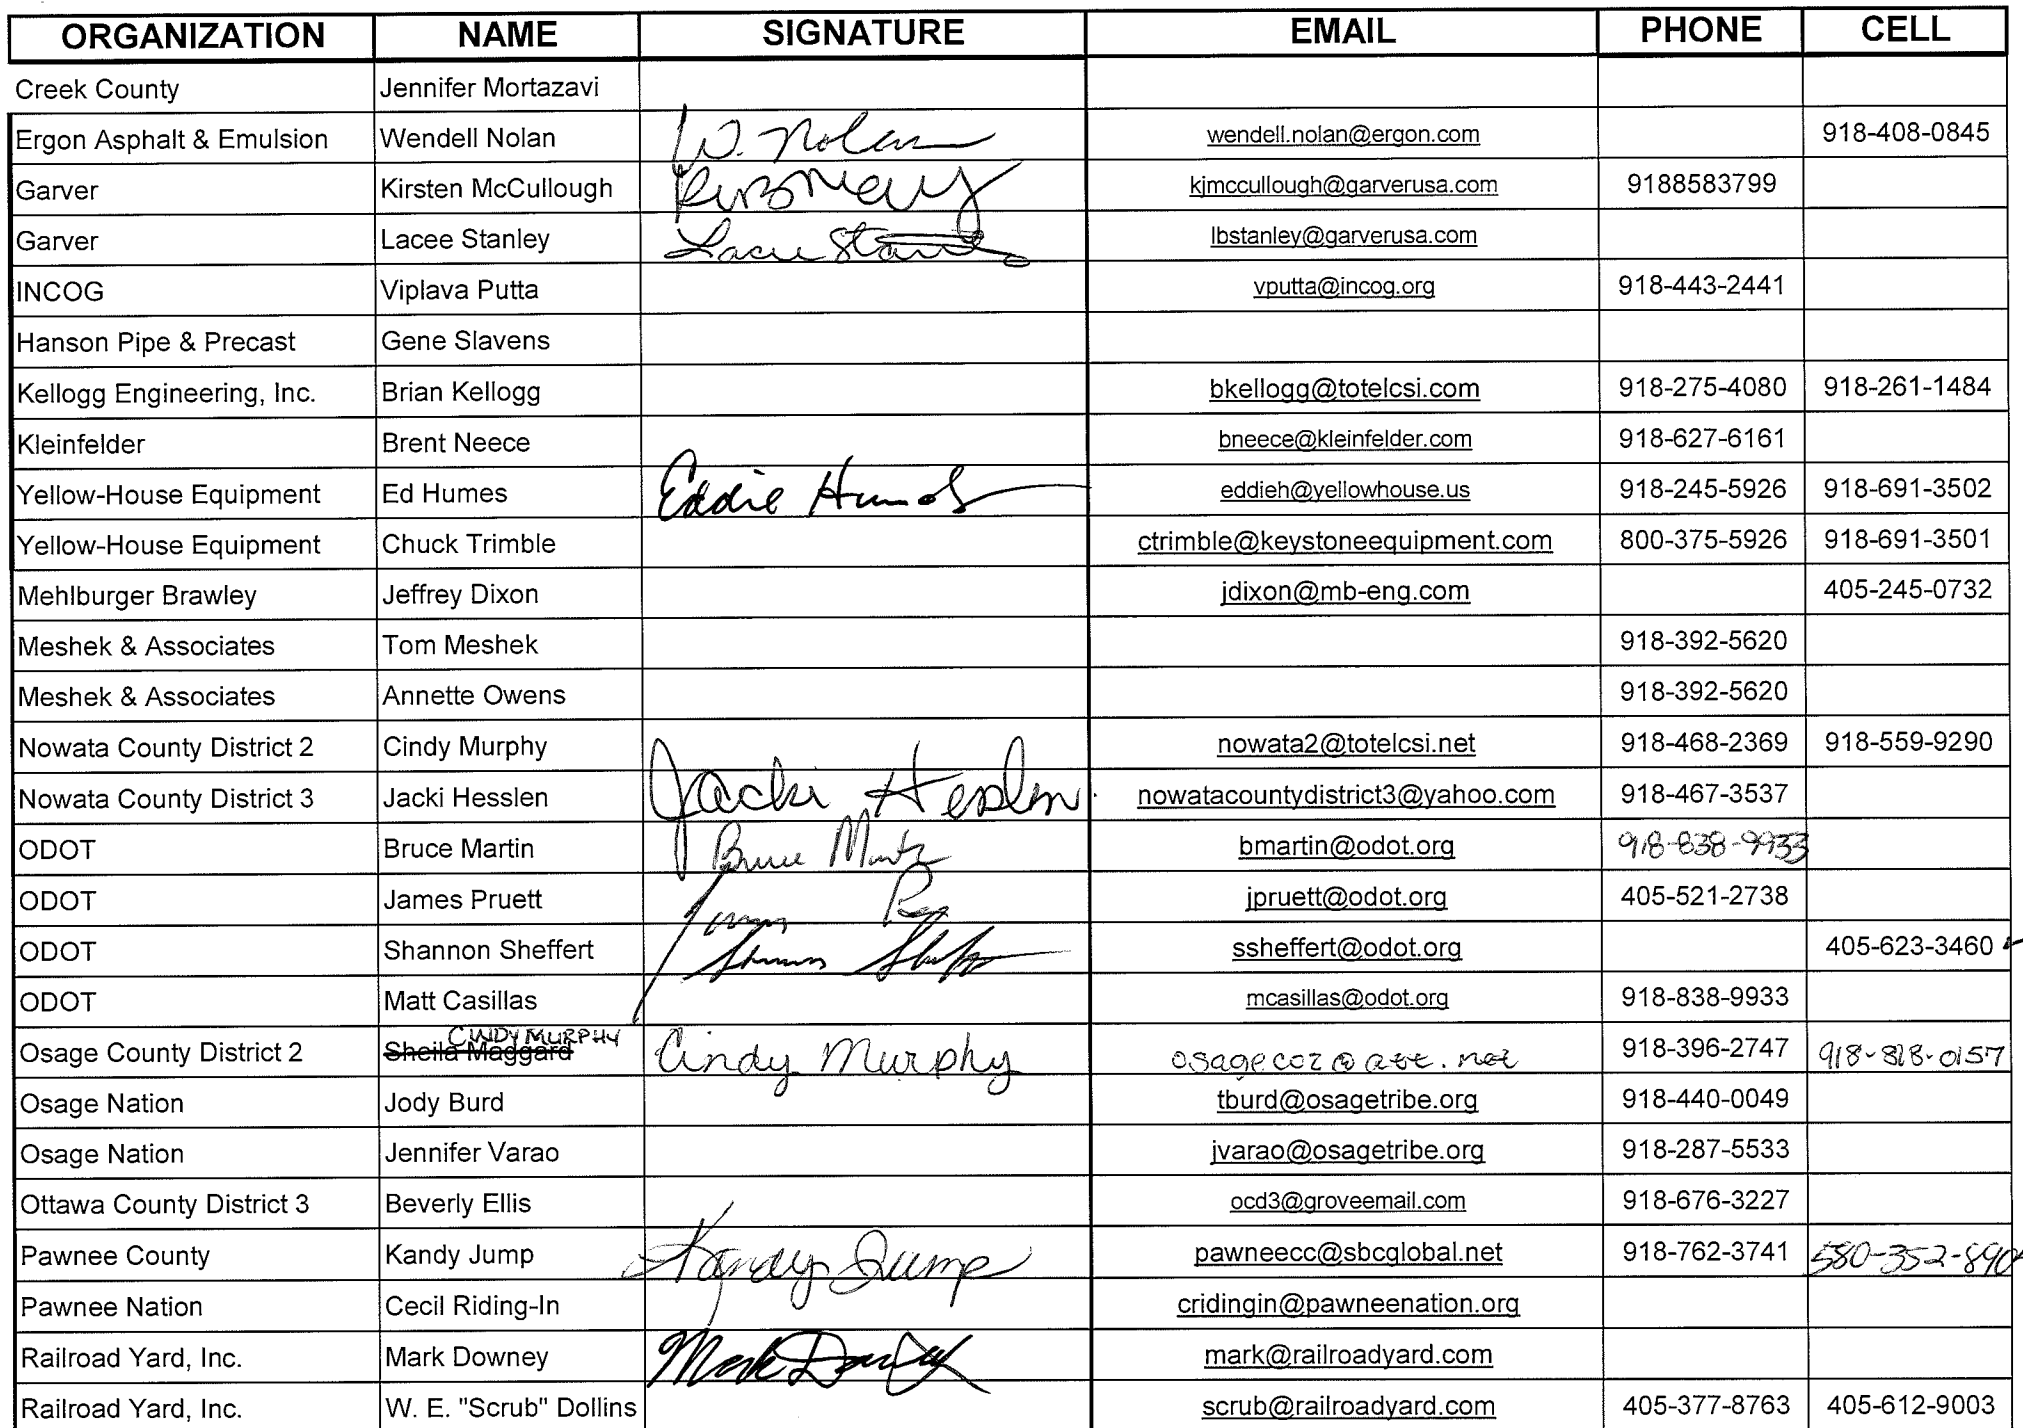 ORGANIZATION NAME SIGNATURE EMAIL PHONE CELL
Creek County Jennifer Mortazavi
Ergon Asphalt & Emulsion Wendell Nolan W. Nolan wendell.nolan@ergon.com 918-408-0845
Garver Kirsten McCullough kjmccullough@garverusa.com 9188583799
Garver Lacee Stanley Lacee Stanley lbstanley@garverusa.com
INCOG Viplava Putta vputta@incog.org 918-443-2441
Hanson Pipe & Precast Gene Slavens
Kellogg Engineering, Inc. Brian Kellogg bkellogg@totelcsi.com 918-275-4080 918-261-1484
Kleinfelder Brent Neece bneece@kleinfelder.com 918-627-6161
Yellow-House Equipment Ed Humes Eddie Humes eddieh@yellowhouse.us 918-245-5926 918-691-3502
Yellow-House Equipment Chuck Trimble ctrimble@keystoneequipment.com 800-375-5926 918-691-3501
Mehlburger Brawley Jeffrey Dixon jdixon@mb-eng.com 405-245-0732
Meshek & Associates Tom Meshek 918-392-5620
Meshek & Associates Annette Owens 918-392-5620
Nowata County District 2 Cindy Murphy nowata2@totelcsi.net 918-468-2369 918-559-9290
Nowata County District 3 Jacki Hesslen Jacki Hesslen nowatacountydistrict3@yahoo.com 918-467-3537
ODOT Bruce Martin Bruce Martin bmartin@odot.org 918-838-9933
ODOT James Pruett jpruett@odot.org 405-521-2738
ODOT Shannon Sheffert ssheffert@odot.org 405-623-3460
ODOT Matt Casillas mcasillas@odot.org 918-838-9933
CINDY MURPHY
Osage County District 2 Sheila Maggard Cindy Murphy osageco2@att.net 918-396-2747 918-818-0157
Osage Nation Jody Burd tburd@osagetribe.org 918-440-0049
Osage Nation Jennifer Varao jvarao@osagetribe.org 918-287-5533
Ottawa County District 3 Beverly Ellis ocd3@groveemail.com 918-676-3227
Pawnee County Kandy Jump Kandy Jump pawneecc@sbcglobal.net 918-762-3741 580-352-890
Pawnee Nation Cecil Riding-In cridingin@pawneenation.org
Railroad Yard, Inc. Mark Downey Mark Downey mark@railroadyard.com
Railroad Yard, Inc. W. E. "Scrub" Dollins scrub@railroadyard.com 405-377-8763 405-612-9003